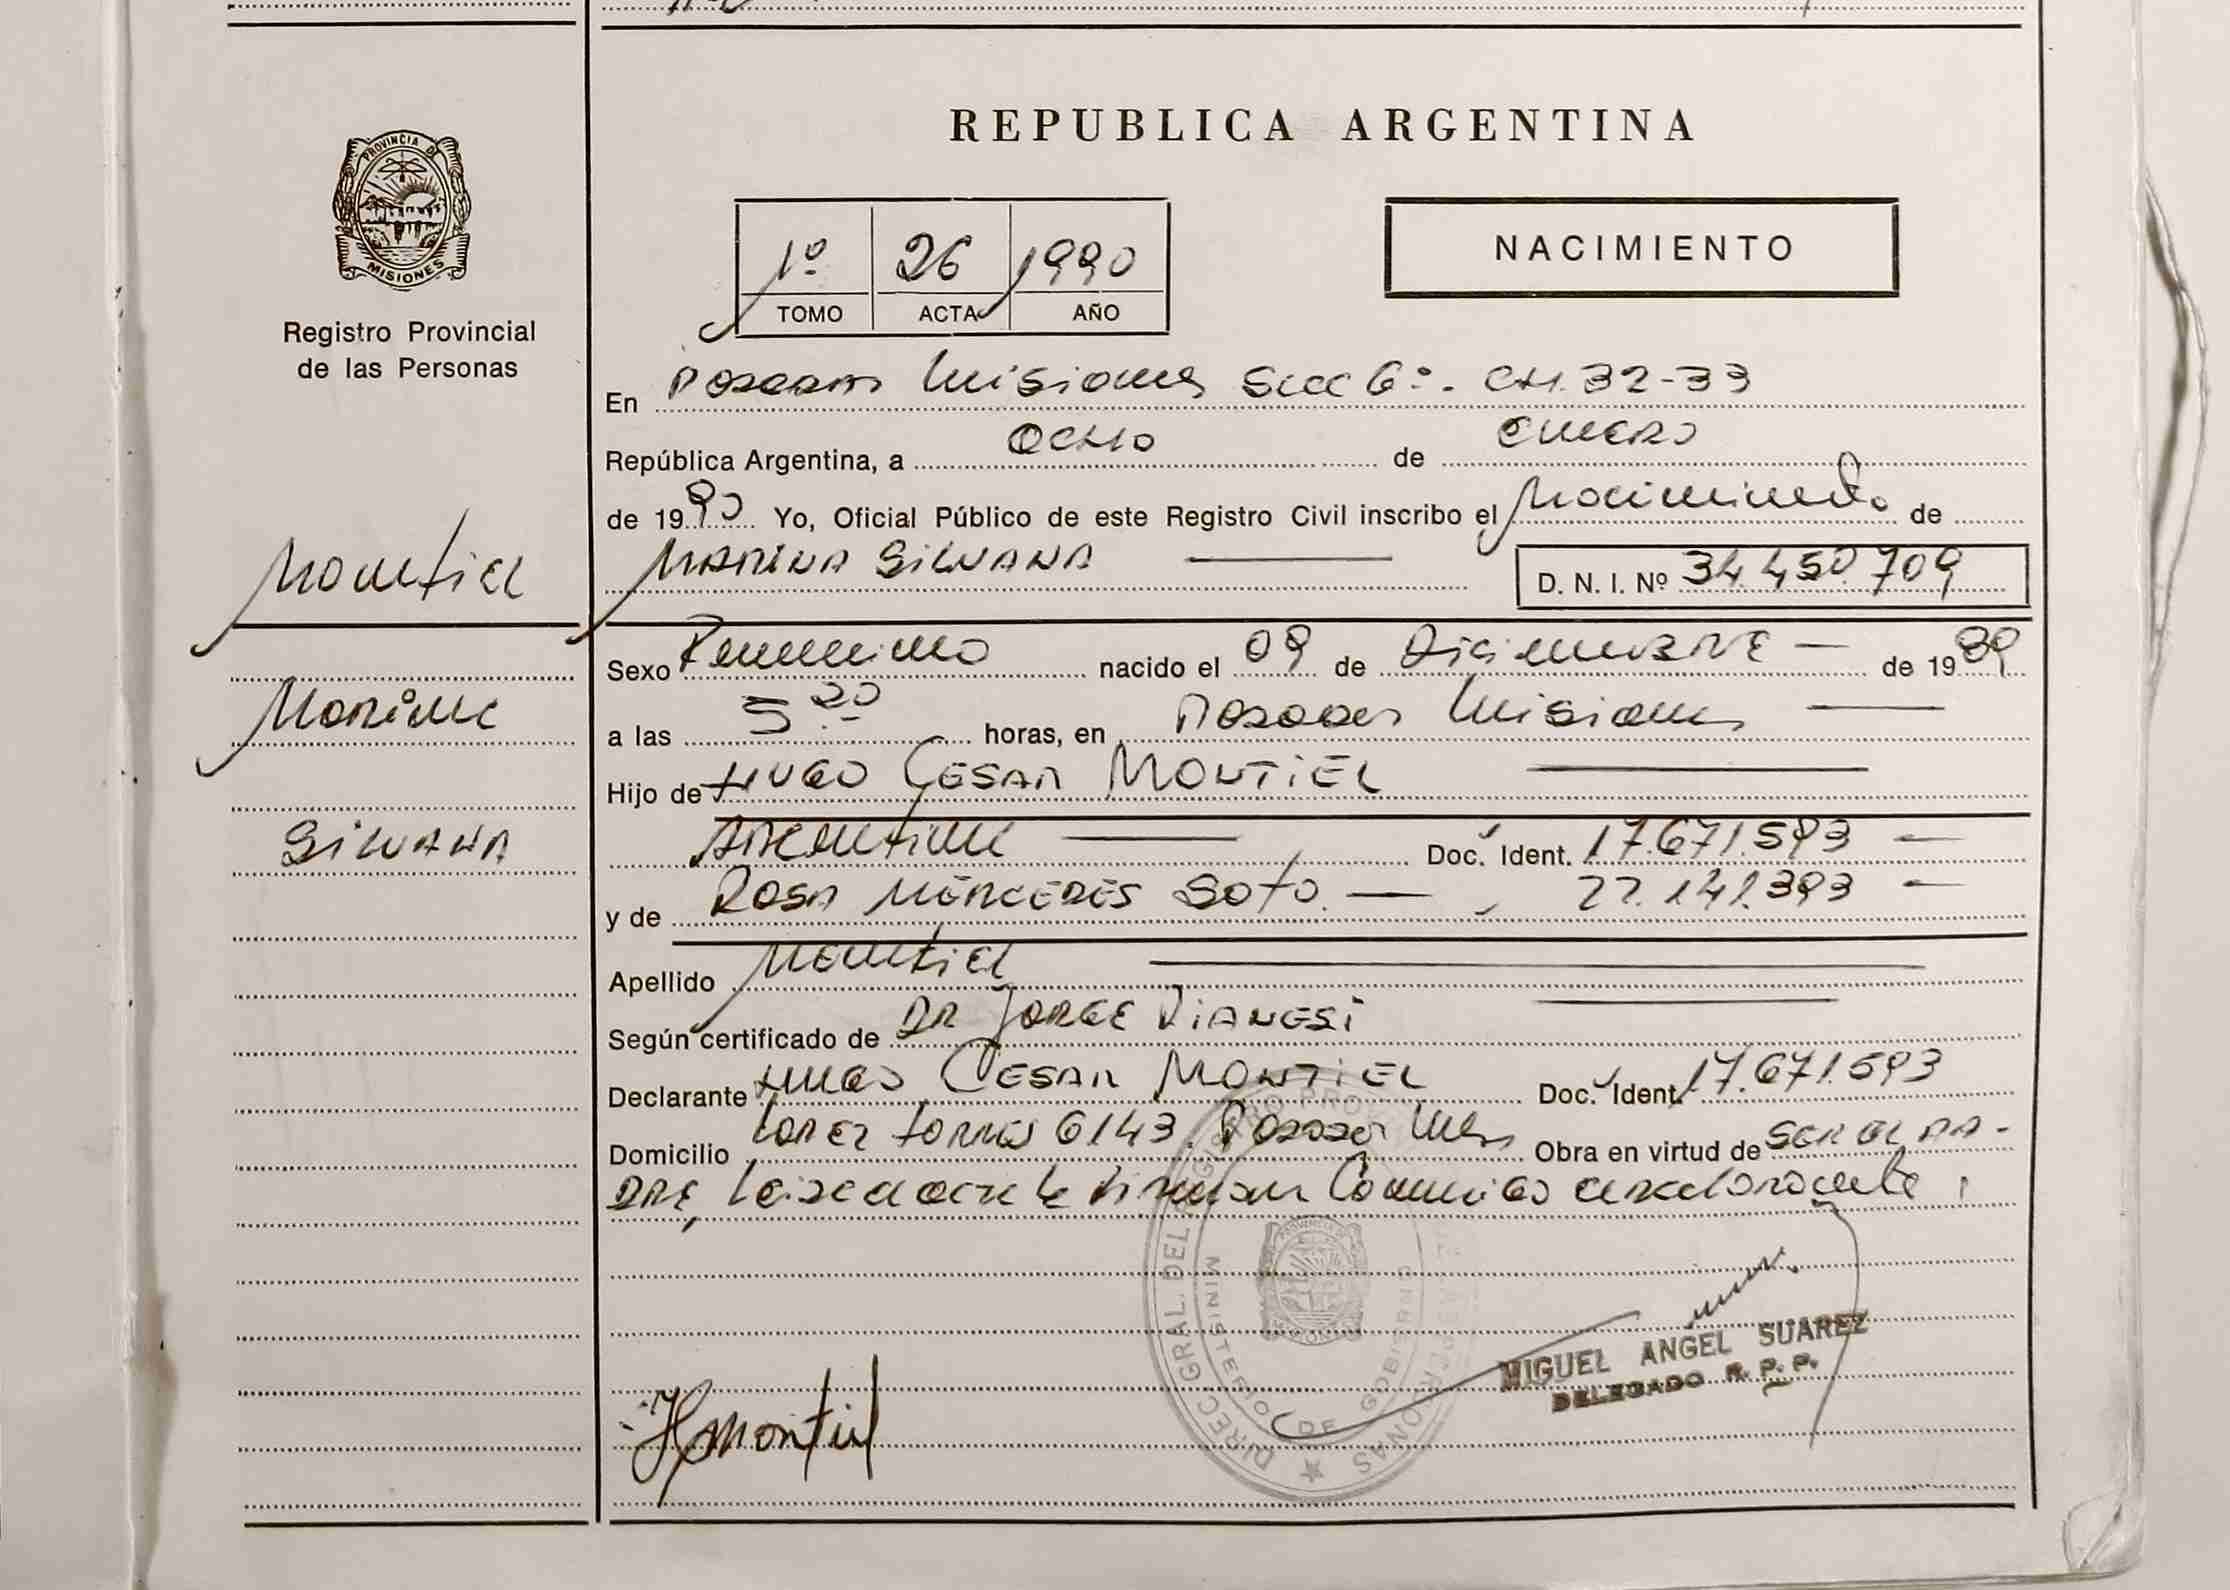 REPUBLICA ARGENTINA
PROVINCIA DE
MISIONES
Registro Provincial
de las Personas
1º 26 1990
TOMO ACTA AÑO
NACIMIENTO
En Posadas Misiones Secc 6º. CH. 32-33
República Argentina, a OCHO de ENERO
de 1990 Yo, Oficial Público de este Registro Civil inscribo el Nacimiento de
MARINA SILVANA D. N. I. Nº 34.450.709
Montiel
Marina
SILVANA
Sexo Femenino nacido el 09 de Diciembre de 1989
a las 5 20 horas, en Posadas Misiones
Hijo de HUGO CESAR MONTIEL
Argentina Doc. Ident. 17.671.593
y de ROSA MERCEDES SOTO. 22.141.393
Apellido Montiel
Según certificado de DR JORGE
Declarante HUGO CESAR MONTIEL Doc. Ident. 17.671.593
Domicilio LOPEZ TORRES 6143. Posadas Mnes Obra en virtud de SER EL PA-
DRE, Leida el acta la firman Conmigo el declarante
DIREC. GRAL. DEL REGISTRO PROV. DE LAS PERSONAS
MINISTERIO DE GOBIERNO
MIGUEL ANGEL SUAREZ
DELEGADO R. P. P.
HMontiel